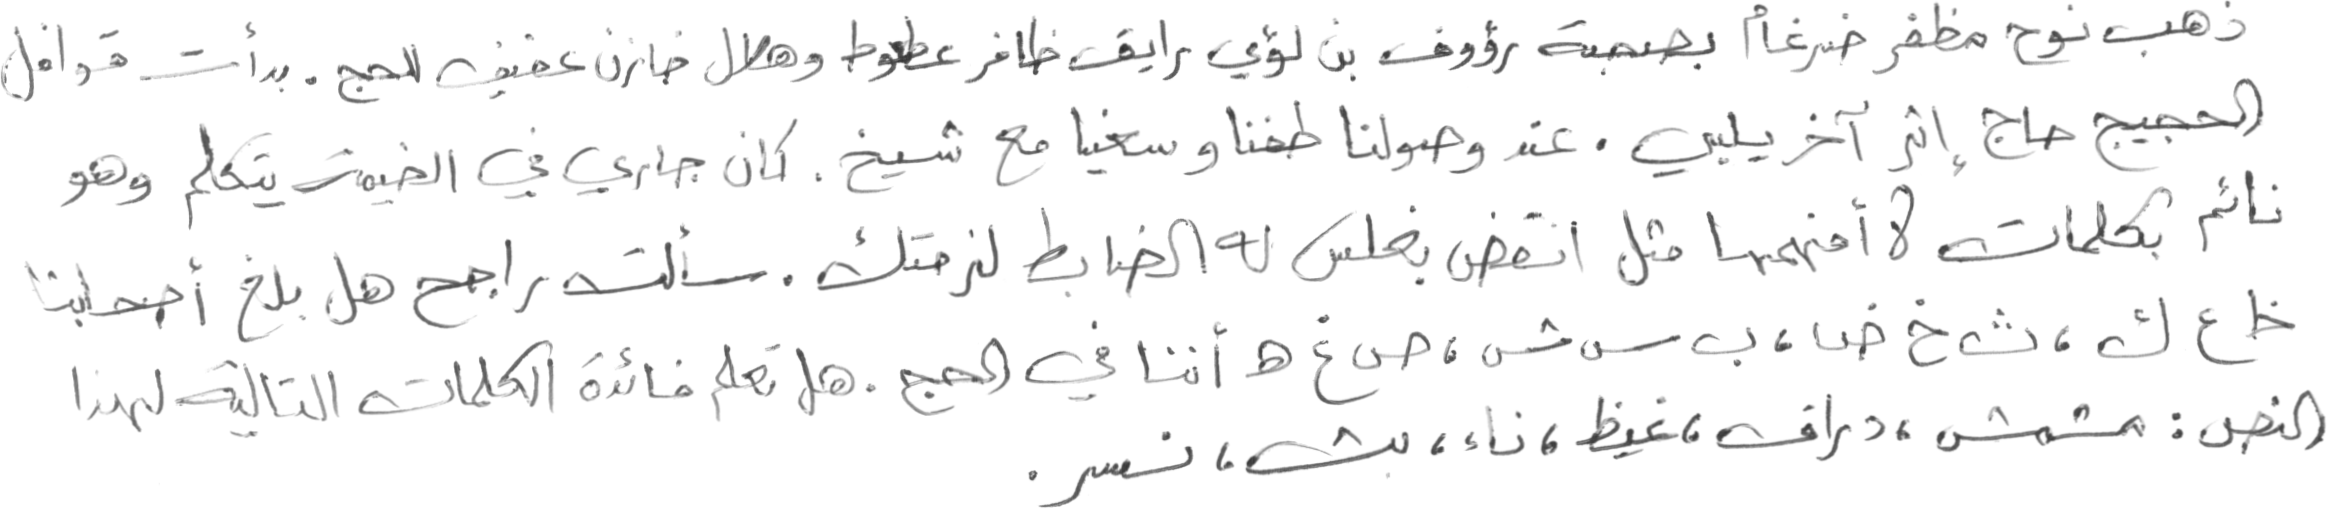 ذهب نوح مظفر ضرغام بصحبة رؤوف بن لؤي رايق ظافر عطوط وهلال خازن عفيف للحج. بدأت قوافل
الحجيج حاج إثر آخر يلبي. عند وصولنا طفنا وسعينا مع شيخ. كان جاري في الخيمة يتكلم وهو
نائم بكلمات لا أفهمها مثل انقض بغلس له الضابط لزمتك. سألت راجح هل بلغ أصحابنا
ظ ع ك، ث خ ض، ب س ش، ص غ ه أننا في الحج. هل تعلم فائدة الكلمات التالية لهذا
النص: مشمش، دراق، غيظ، ناء، بث، نسر.